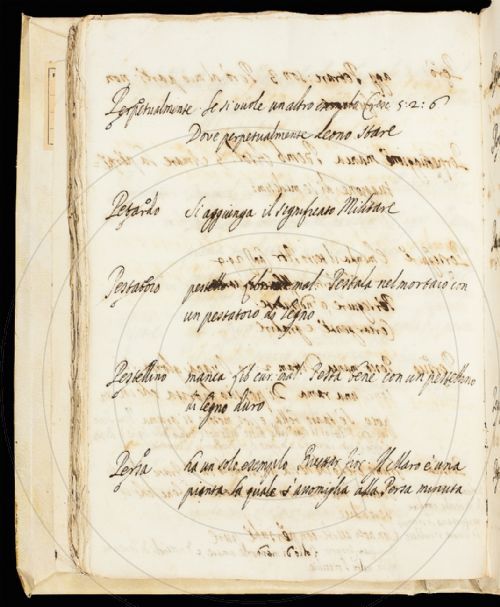 Perpetualmente Se si vuole un altro 5: 2: 6
Dove perpetualmente deono stare
Petardo Si aggiunga il significato Militare
Pestatoio pestello mal. Pestala nel mortaio con
un pestatoio di legno
Pestellino manca lib cur mal. Pesta bene con un pestellino
di legno duro
Persa ha un solo esempio è una
pianta la quale s'assomiglia alla Persa minuta